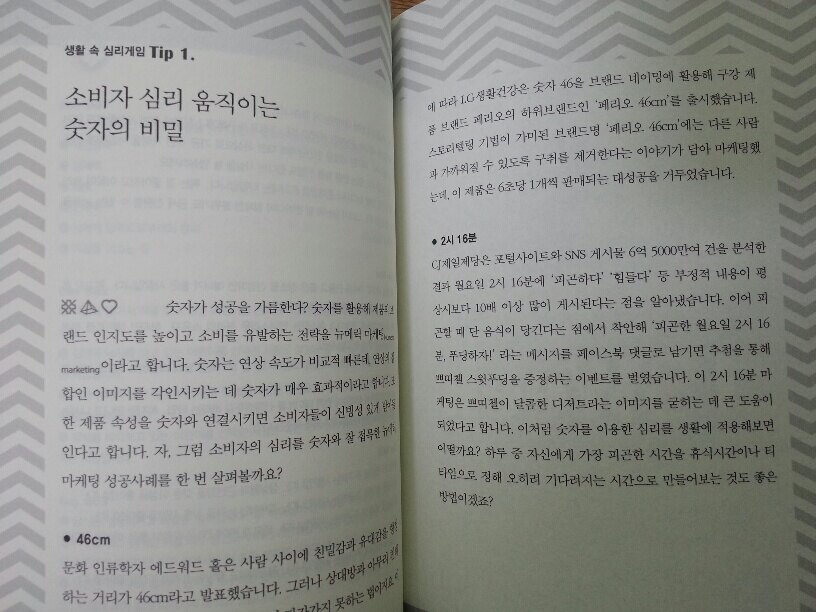 생활 속 심리게임 Tip 1.
소비자 심리 움직이는
숫자의 비밀
숫자가 성공을 가름한다? 숫자를 활용해 제품의 브
랜드 인지도를 높이고 소비를 유발하는 전략을 뉴메릭 마케팅
marketing이라고 합니다. 숫자는 연상 속도가 비교적 빠른데, 연상의 집
합인 이미지를 각인시키는 데 숫자가 매우 효과적이라고 합니다. 또
한 제품 속성을 숫자와 연결시키면 소비자들이 신빙성 있게 받아들
인다고 합니다. 자, 그럼 소비자의 심리를 숫자와 잘 접목한 뉴메릭
마케팅 성공사례를 한 번 살펴볼까요?
• 46cm
문화 인류학자 에드워드 홀은 사람 사이에 친밀감과 유대감을
하는 거리가 46cm라고 발표했습니다. 그러나 상대방과 아무리
가가지 못하는 법이지요
에 따라 LG생활건강은 숫자 46을 브랜드 네이밍에 활용해 구강 제
품 브랜드 페리오의 하위브랜드인 '페리오 46cm'를 출시했습니다.
스토리텔링 기법이 가미된 브랜드명 '페리오 46cm'에는 다른 사람
과 가까워질 수 있도록 구취를 제거한다는 이야기가 담아 마케팅했
는데, 이 제품은 6초당 1개씩 판매되는 대성공을 거두었습니다.
• 2시 16분
CJ제일제당은 포털사이트와 SNS 게시물 6억 5000만여 건을 분석한
결과 월요일 2시 16분에 '피곤하다' '힘들다' 등 부정적 내용이 평
상시보다 10배 이상 많이 게시된다는 점을 알아냈습니다. 이어 피
곤할 때 단 음식이 당긴다는 점에서 착안해 '피곤한 월요일 2시 16
분, 푸딩하자!' 라는 메시지를 페이스북 댓글로 남기면 추첨을 통해
쁘띠첼 스윗푸딩을 증정하는 이벤트를 벌였습니다. 이 2시 16분 마
케팅은 쁘띠첼이 달콤한 디저트라는 이미지를 굳히는 데 큰 도움이
되었다고 합니다. 이처럼 숫자를 이용한 심리를 생활에 적용해보면
어떨까요? 하루 중 자신에게 가장 피곤한 시간을 휴식시간이나 티
타임으로 정해 오히려 기다려지는 시간으로 만들어보는 것도 좋은
방법이겠죠?